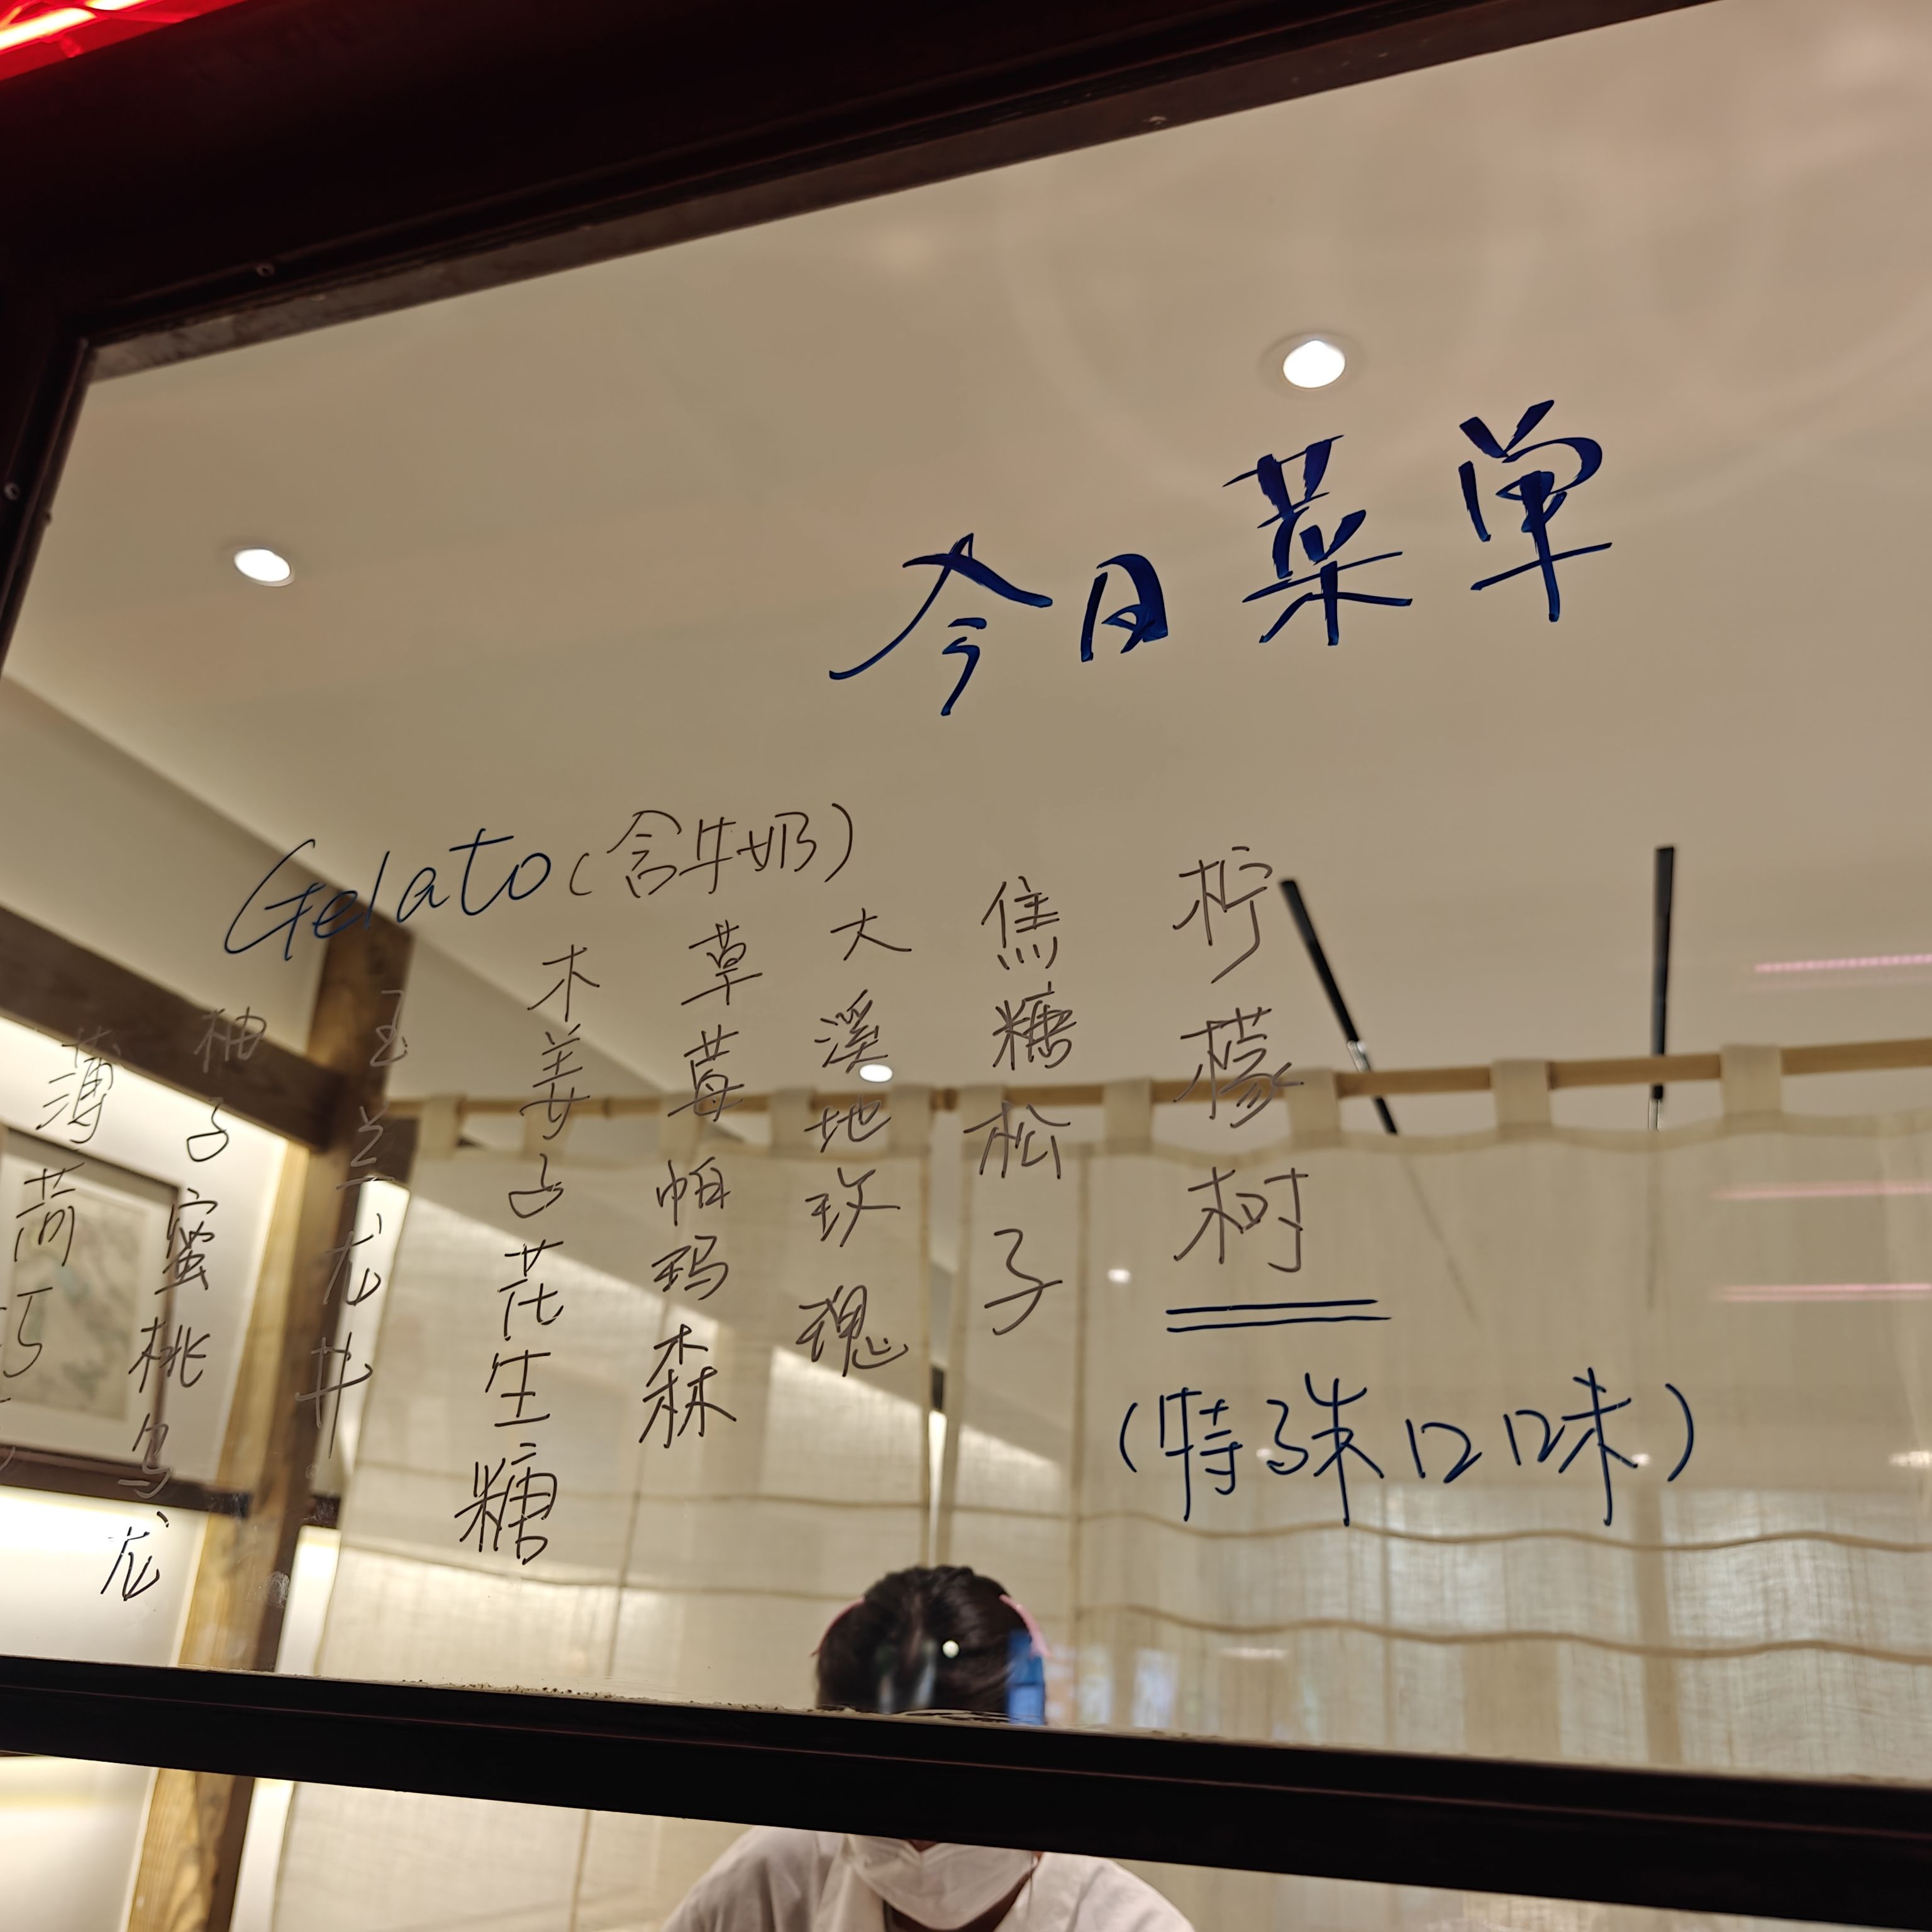 今日菜单
Gelato(含牛奶)
薄荷巧
柚子蜜桃乌龙
玉兰龙井
木姜子花生糖
草莓帕玛森
大溪地玫瑰
焦糖松子
柠檬柯
(特殊口味)